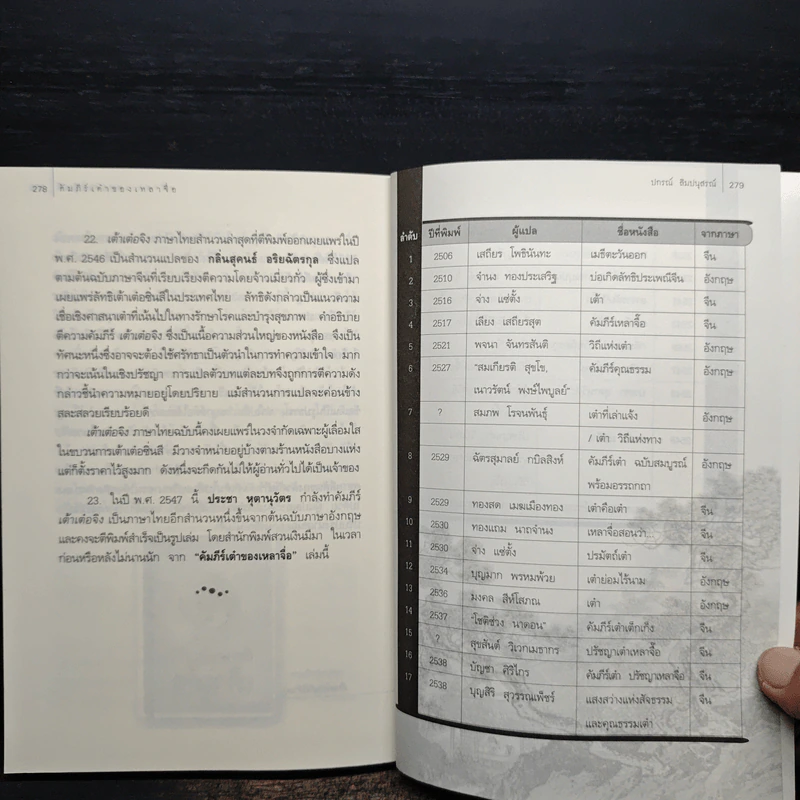 278 คัมภีร์เต๋าของเหลาจื่อ
22. เต้าเต๋อจิง ภาษาไทยสำนวนล่าสุดที่ตีพิมพ์ออกเผยแพร่ในปี
พ.ศ. 2546 เป็นสำนวนแปลของ กลิ่นสุคนธ์ อริยฉัตรกุล ซึ่งแปล
ตามต้นฉบับภาษาจีนที่เรียบเรียงตีความโดยจ้าวเมี่ยวกั่ว ผู้ซึ่งเข้ามา
เผยแพร่ลัทธิเต้าเต๋อซินสีในประเทศไทย ลัทธิดังกล่าวเป็นแนวความ
เชื่อเชิงศาสนาเต๋าที่เน้นไปในทางรักษาโรคและบำรุงสุขภาพ คำอธิบาย
ตีความคัมภีร์ เต้าเต๋อจิง ซึ่งเป็นเนื้อความส่วนใหญ่ของหนังสือ จึงเป็น
ทัศนะหนึ่งซึ่งอาจจะต้องใช้ศรัทธาเป็นตัวนำในการทำความเข้าใจ มาก
กว่าจะเน้นในเชิงปรัชญา การแปลตัวบทแต่ละบทจึงถูกการตีความดัง
กล่าวชี้นำความหมายอยู่โดยปริยาย แม้สำนวนการแปลจะค่อนข้าง
สละสลวยเรียบร้อยดี
เต้าเต๋อจิง ภาษาไทยฉบับนี้คงเผยแพร่ในวงจำกัดเฉพาะผู้เลื่อมใส
ในขบวนการเต้าเต๋อซินสี มีวางจำหน่ายอยู่บ้างตามร้านหนังสือบางแห่ง
แต่ก็ตั้งราคาไว้สูงมาก ดังหนึ่งจะกีดกันไม่ให้ผู้อ่านทั่วไปได้เป็นเจ้าของ
23. ในปี พ.ศ. 2547 นี้ ประชา หุตานุวัตร กำลังทำคัมภีร์
เต้าเต๋อจิง เป็นภาษาไทยอีกสำนวนหนึ่งขึ้นจากต้นฉบับภาษาอังกฤษ
และคงจะตีพิมพ์สำเร็จเป็นรูปเล่ม โดยสำนักพิมพ์สวนเงินมีมา ในเวลา
ก่อนหรือหลังไม่นานนัก จาก "คัมภีร์เต๋าของเหลาจื่อ" เล่มนี้
ปกรณ์ ลิมปนุสรณ์ 279
ลำดับ ปีที่พิมพ์ ผู้แปล ชื่อหนังสือ จากภาษา
1 2506 เสถียร โพธินันทะ เมธีตะวันออก จีน
2 2510 จำนง ทองประเสริฐ บ่อเกิดลัทธิประเพณีจีน อังกฤษ
3 2516 จ่าง แซ่ตั้ง เต้า จีน
4 2517 เลียง เสถียรสุต คัมภีร์เหลาจื๊อ จีน
5 2521 พจนา จันทรสันติ วิถีแห่งเต๋า อังกฤษ
6 2527 "สมเกียรติ สุขโข, คัมภีร์คุณธรรม อังกฤษ
เนาวรัตน์ พงษ์ไพบูลย์"
7 ? สมภพ โรจนพันธุ์ เต๋าที่เล่าแจ้ง อังกฤษ
/ เต๋า วิถีแห่งทาง
8 2529 ฉัตรสุมาลย์ กบิลสิงห์ คัมภีร์เต๋า ฉบับสมบูรณ์ อังกฤษ
พร้อมอรรถกถา
9 2529 ทองสด เมฆเมืองทอง เต๋าคือเต๋า จีน
10 2530 ทองแถม นาถจำนง เหลาจื่อสอนว่า... จีน
11 2530 จ่าง แซ่ตั้ง ปรมัตถ์เต๋า จีน
12 2534 บุญมาก พรหมพ้วย เต๋าย่อมไร้นาม อังกฤษ
13 2536 มงคล สีห์โสภณ เต๋า อังกฤษ
14 2537 "โชติช่วง นาดอน" คัมภีร์เต๋าเต็กเก็ง จีน
15 ? สุขสันต์ วิเวกเมธากร ปรัชญาเต๋าเหลาจื๊อ จีน
16 2538 บัญชา ศิริไกร คัมภีร์เต๋า ปรัชญาเหลาจื่อ จีน
17 2538 บุญสิริ สุวรรณเพ็ชร์ แสงสว่างแห่งสัจธรรม จีน
และคุณธรรมเต๋า